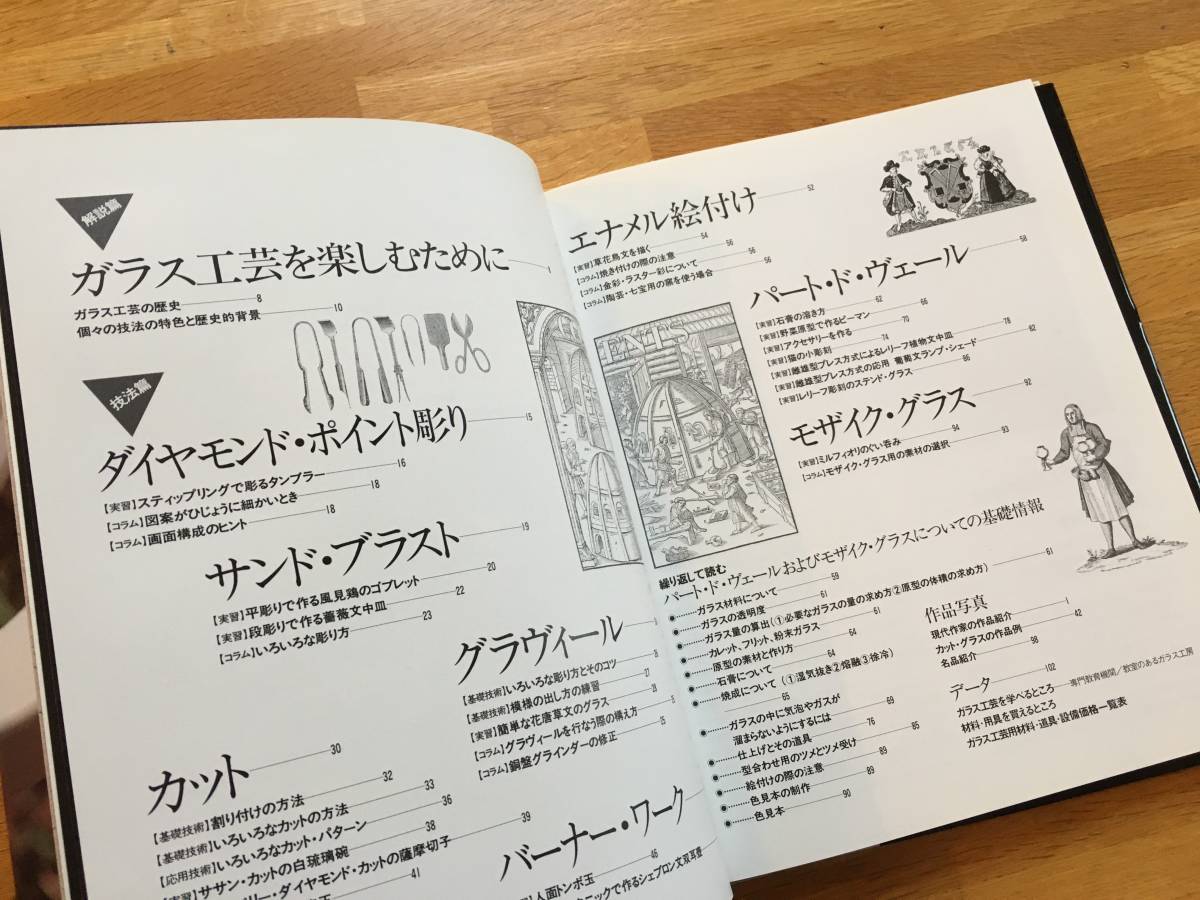 解説篇
ガラス工芸を楽しむために
ガラス工芸の歴史 8
個々の技法の特色と歴史的背景 10
技法篇
ダイヤモンド・ポイント彫り 15
【実習】スティップリングで彫るタンブラー 16
【コラム】図案がひじょうに細かいとき 18
【コラム】画面構成のヒント 18
サンド・ブラスト 19
【実習】平彫りで作る風見鶏のゴブレット 20
【実習】段彫りで作る薔薇文中皿 22
【コラム】いろいろな彫り方 23
グラヴィール
【基礎技術】いろいろな彫り方とそのコツ
【基礎技術】模様の出し方の練習 27
【実習】簡単な花唐草文のグラス
【コラム】グラヴィールを行なう際の構え方
【コラム】銅盤グラインダーの修正
カット 30
【基礎技術】割り付けの方法 32
【基礎技術】いろいろなカットの方法 33
【応用技術】いろいろなカット・パターン 36
【実習】ササン・カットの白琉璃碗 38
リー・ダイヤモンド・カットの薩摩切子 39
41
バーナー・ワーク
人面トンボ玉 46
ニックで作るシェブロン文双耳壺
エナメル絵付け 52
【実習】草花鳥文を描く 54
【コラム】焼き付けの際の注意 56
【コラム】金彩・ラスター彩について 56
【コラム】陶芸・七宝用の窯を使う場合 56
パート・ド・ヴェール 58
【実習】石膏の溶き方 62
【実習】野菜原型で作るピーマン 66
【実習】アクセサリーを作る 70
【実習】猫の小彫刻 74
【実習】雌雄型プレス方式によるレリーフ植物文中皿 78
【実習】雌雄型プレス方式の応用 葡萄文ランプ・シェード 82
【実習】レリーフ彫刻のステンド・グラス 86
モザイク・グラス 92
【実習】ミルフィオリのぐい呑み 94
【コラム】モザイク・グラス用の素材の選択 93
繰り返して読む
パート・ド・ヴェールおよびモザイク・グラスについての基礎情報
ガラス材料について 59
ガラスの透明度 61
ガラス量の算出(①必要なガラスの量の求め方②原型の体積の求め方) 61
カレット、フリット、粉末ガラス 61
原型の素材と作り方 64
石膏について 64
焼成について(①湿気抜き②熔融③徐冷)
65
ガラスの中に気泡やガスが
溜まらないようにするには 76
仕上げとその道具 85
型合わせ用のツメとツメ受け 89
絵付けの際の注意 89
色見本の制作 90
色見本
作品写真
現代作家の作品紹介 1
カット・グラスの作品例 42
名品紹介 98
データ 102
ガラス工芸を学べるところ 専門教育機関/教室のあるガラス工房
材料・用具を買えるところ
ガラス工芸用材料・道具・設備価格一覧表